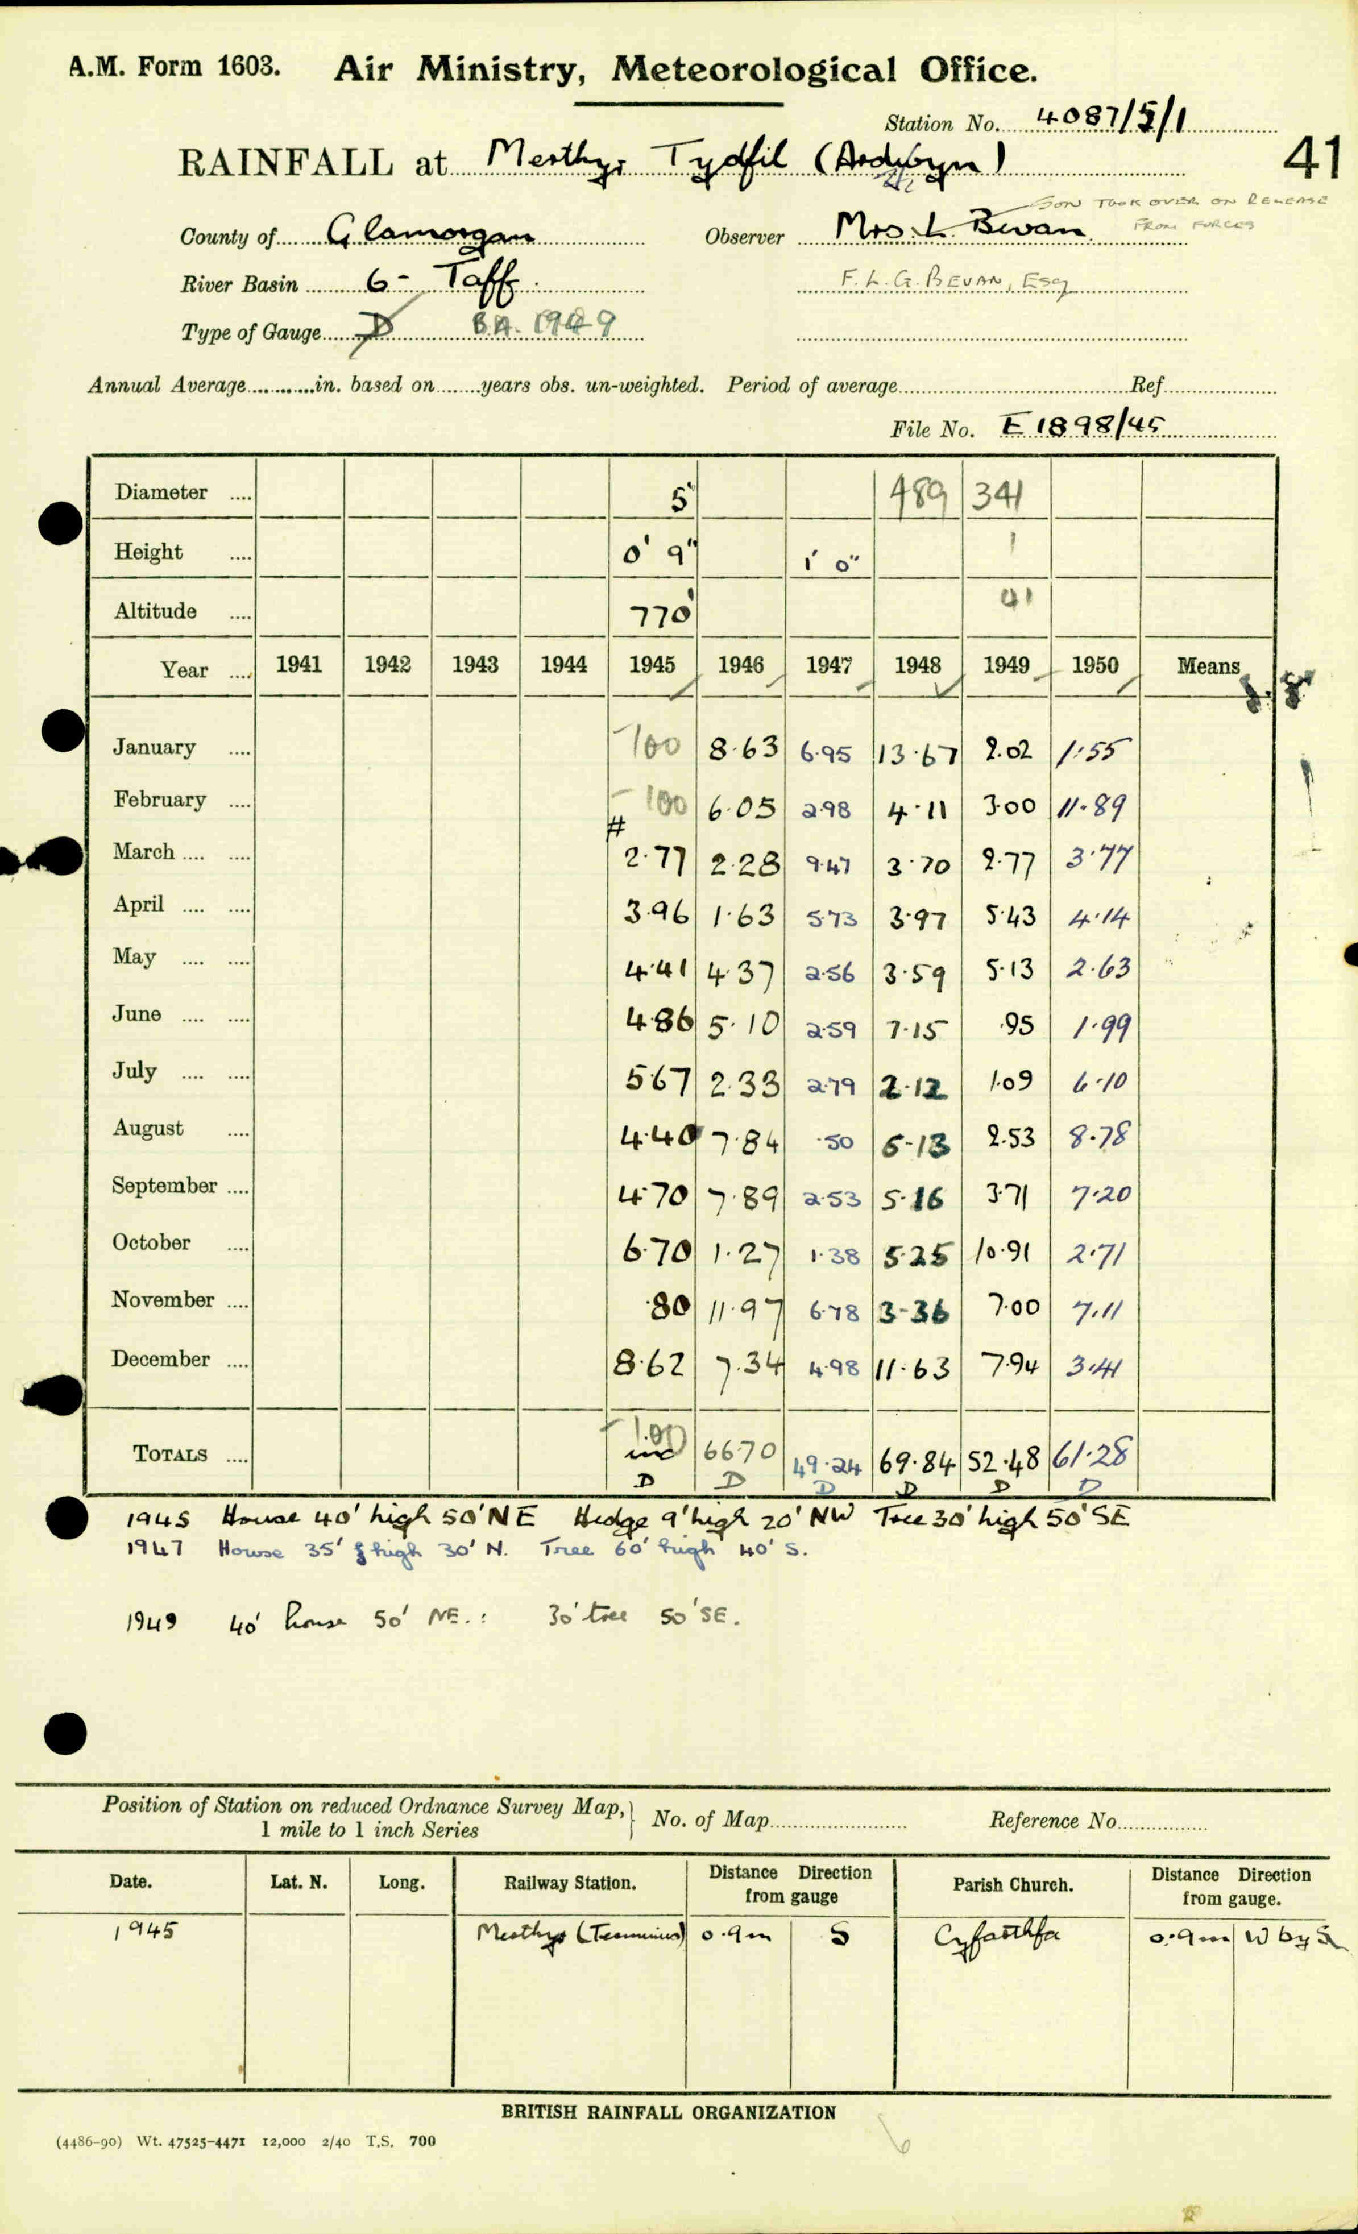 A.M. Form 1603. Air Ministry, Meteorological Office.
Station No. 4087/5/1
41
RAINFALL at Merthyr Tydfil (Ardwyn)
SON TOOK OVER ON RELEASE
FROM FORCES
County of Glamorgan Observer Mrs. L. Bevan
River Basin 6 - Taff. F. L. G. BEVAN, Esq
Type of Gauge D B.A. 1949
Annual Average in. based on years obs. un-weighted. Period of average Ref
File No. E 1898/45
Diameter 5" 489 341
Height 0' 9" 1' 0" 1
Altitude 770' 41
Year 1941 1942 1943 1944 1945 1946 1947 1948 1949 1950 Means
January -100 8.63 6.95 13.67 2.02 1.55
February -100 6.05 2.98 4.11 3.00 11.89
March # 2.77 2.28 9.47 3.70 2.77 3.77
April 3.96 1.63 5.73 3.97 5.43 4.14
May 4.41 4.37 2.56 3.59 5.13 2.63
June 4.86 5.10 2.59 7.15 .95 1.99
July 5.67 2.33 2.79 2.12 1.09 6.10
August 4.40 7.84 .50 6.13 2.53 8.78
September 4.70 7.89 2.53 5.16 3.71 7.20
October 6.70 1.27 1.38 5.25 10.91 2.71
November .80 11.97 6.78 3.36 7.00 7.11
December 8.62 7.34 4.98 11.63 7.94 3.41
TOTALS -100 inc 66.70 49.24 69.84 52.48 61.28
D D D D D D
1945 House 40' high 50' NE Hedge 9' high 20' NW Tree 30' high 50' SE
1947 House 35' high 30' N. Tree 60' high 40' S.
1949 40' house 50' NE.: 30' tree 50' SE.
Position of Station on reduced Ordnance Survey Map, 1 mile to 1 inch Series No. of Map Reference No.
Date. Lat. N. Long. Railway Station. Distance Direction from gauge Parish Church. Distance Direction from gauge.
1945 Merthyr (Terminus) 0.9m S Cyfarthfa 0.9m W by S
BRITISH RAINFALL ORGANIZATION
(4486-90) Wt. 47525-4471 12,000 2/40 T.S. 700
6